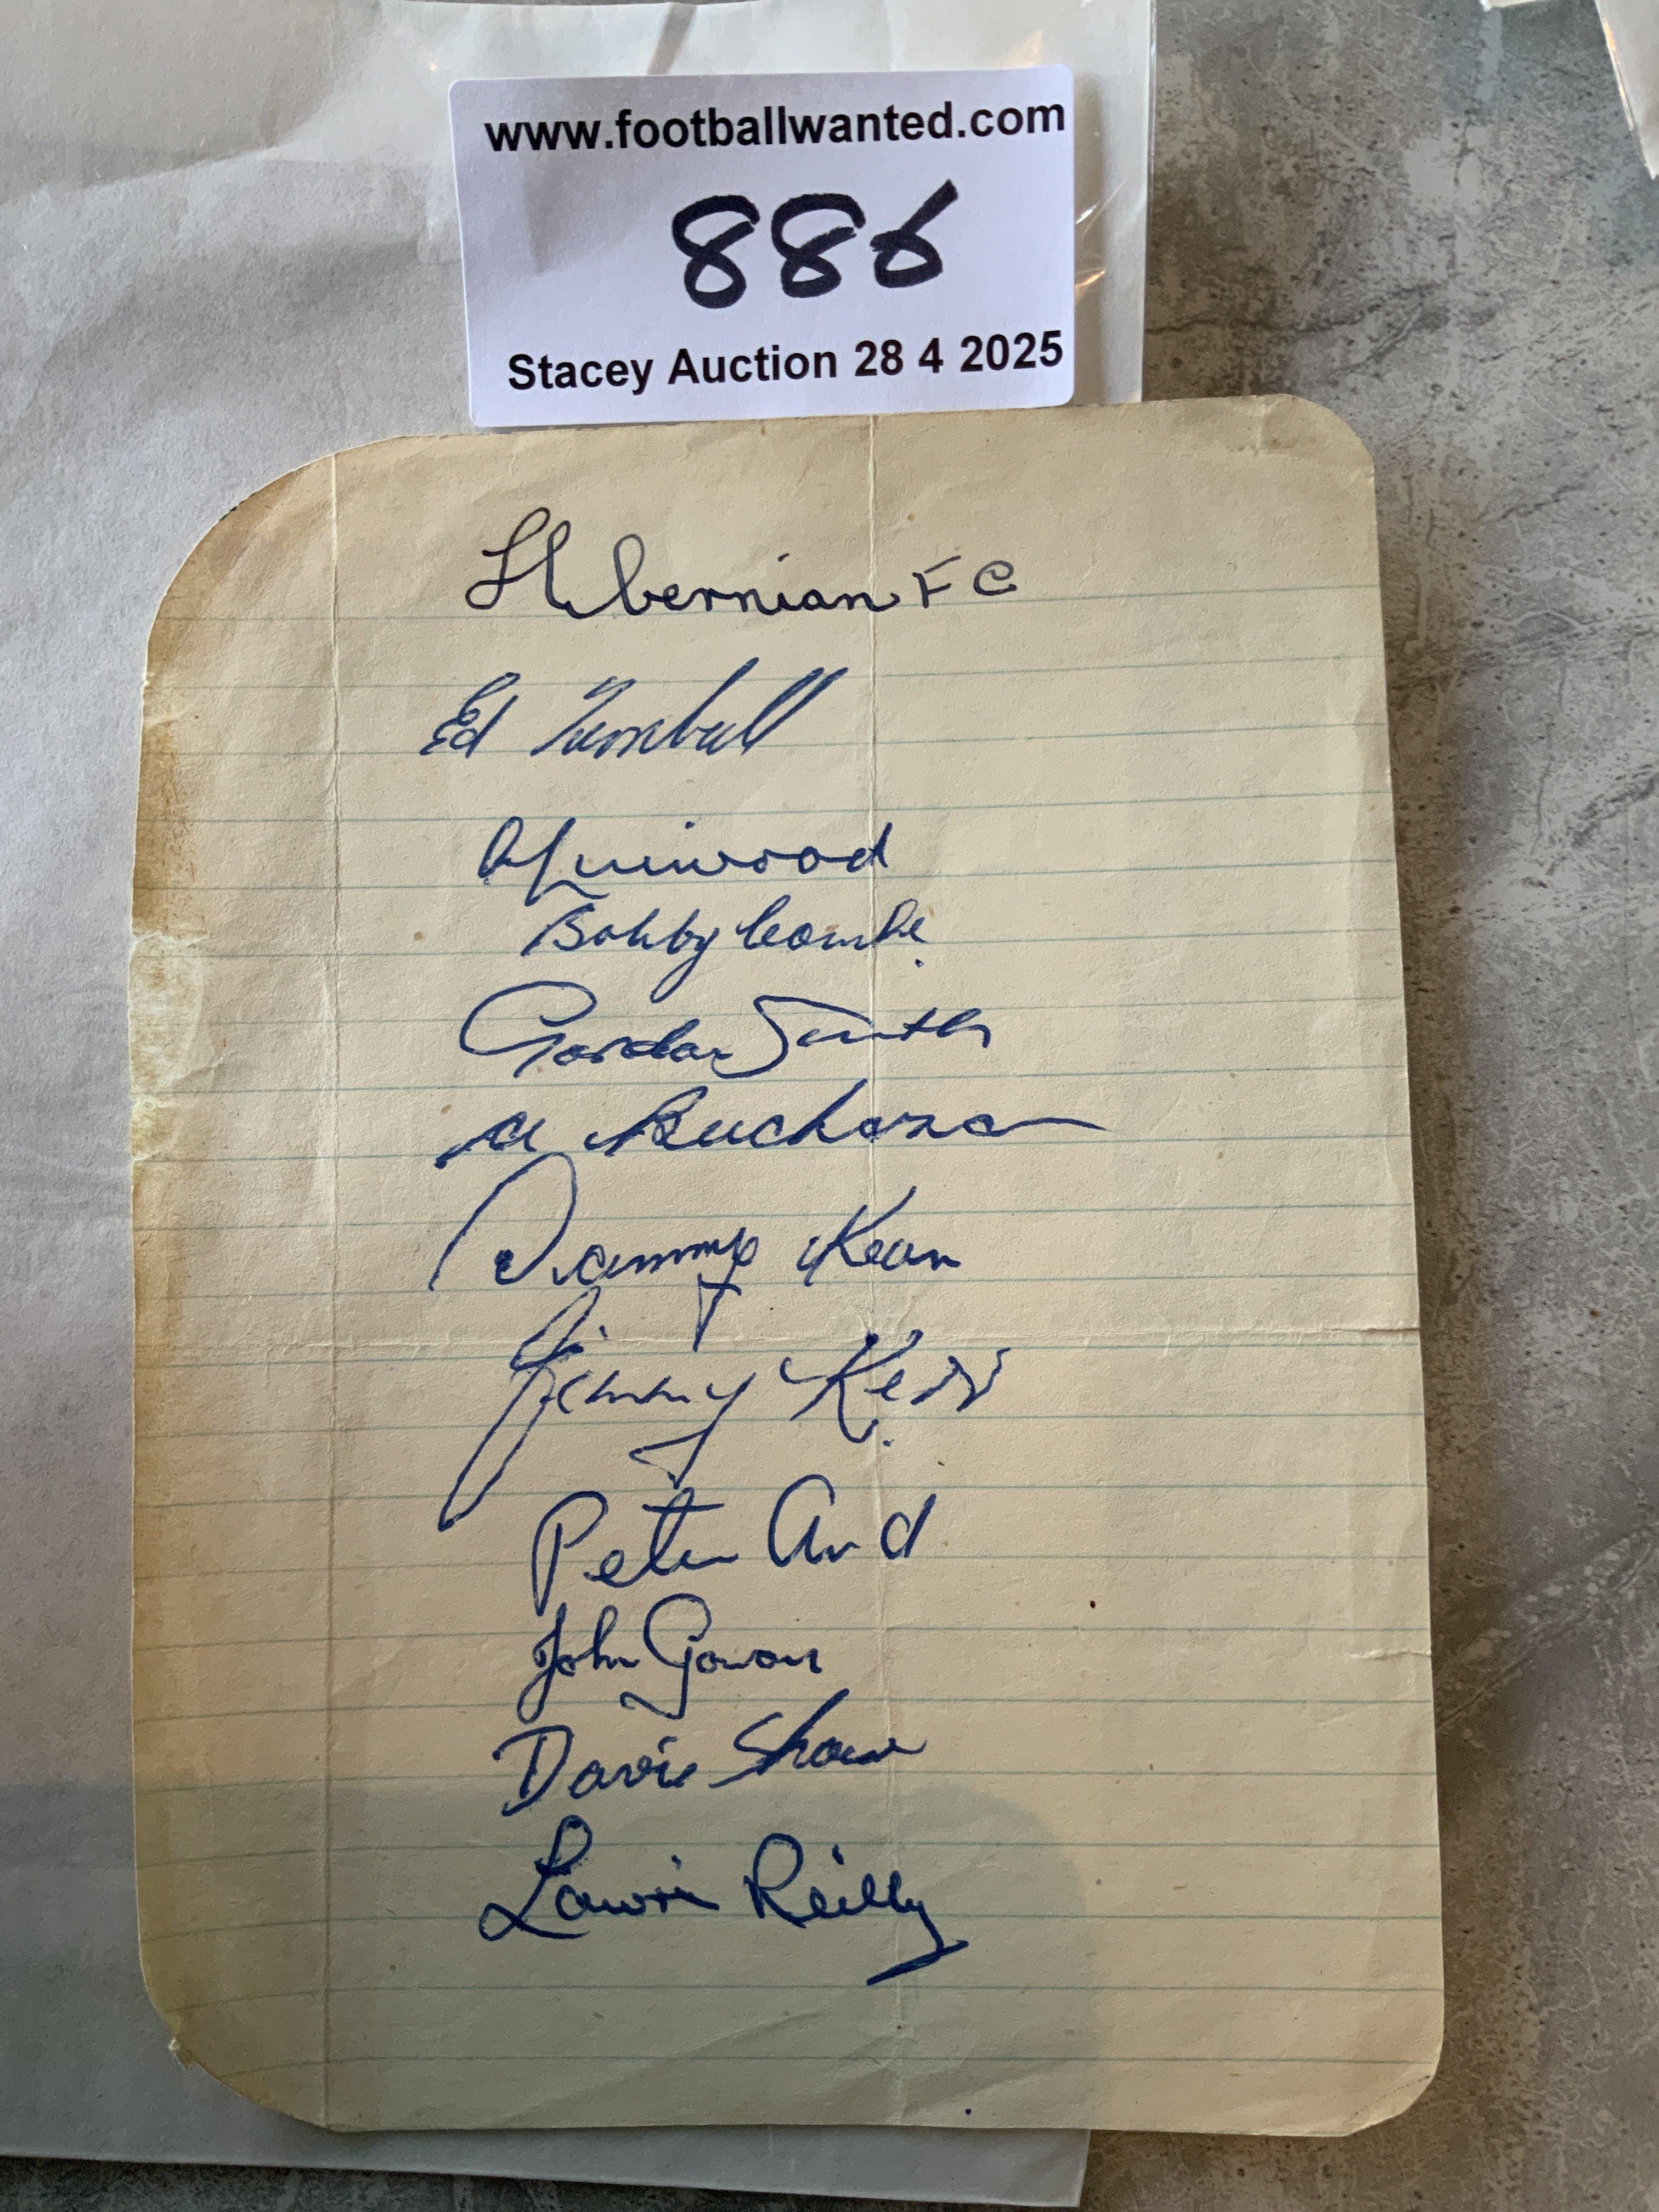 www.footballwanted.com
886
Stacey Auction 28 4 2025
Hibernian FC
Ed Turnbull
A Linwood
Bobby Combe
Gordon Smith
A Buchanan
Sammy Kean
Jimmy Kerr
Peter Aird
John Govan
Davie Shaw
Lawrie Reilly